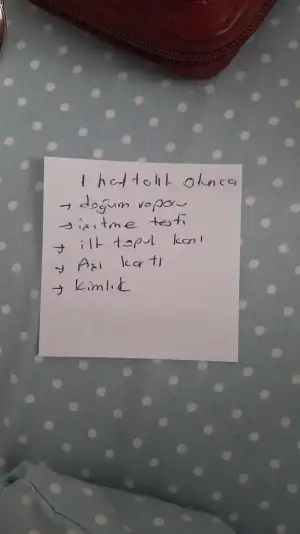 1 haftalık olunca
→ doğum raporu
→ işitme testi
→ ilk topuk kanı
→ Aşı kartı
→ kimlik